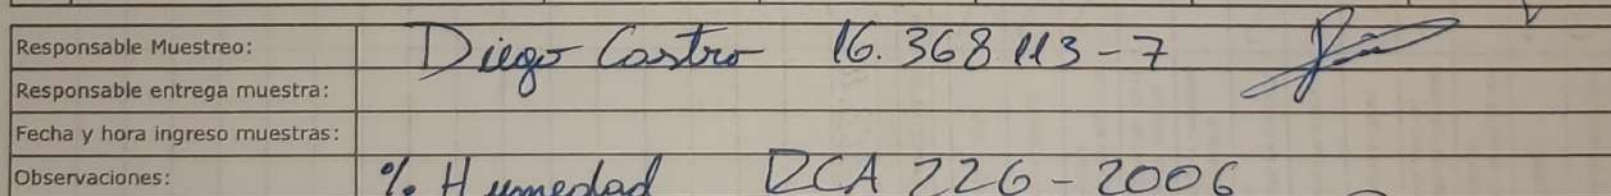 Responsable Muestreo: Diego Castro 16.368 113-7
Responsable entrega muestra:
Fecha y hora ingreso muestras:
Observaciones: % Humedad RCA 226-2006